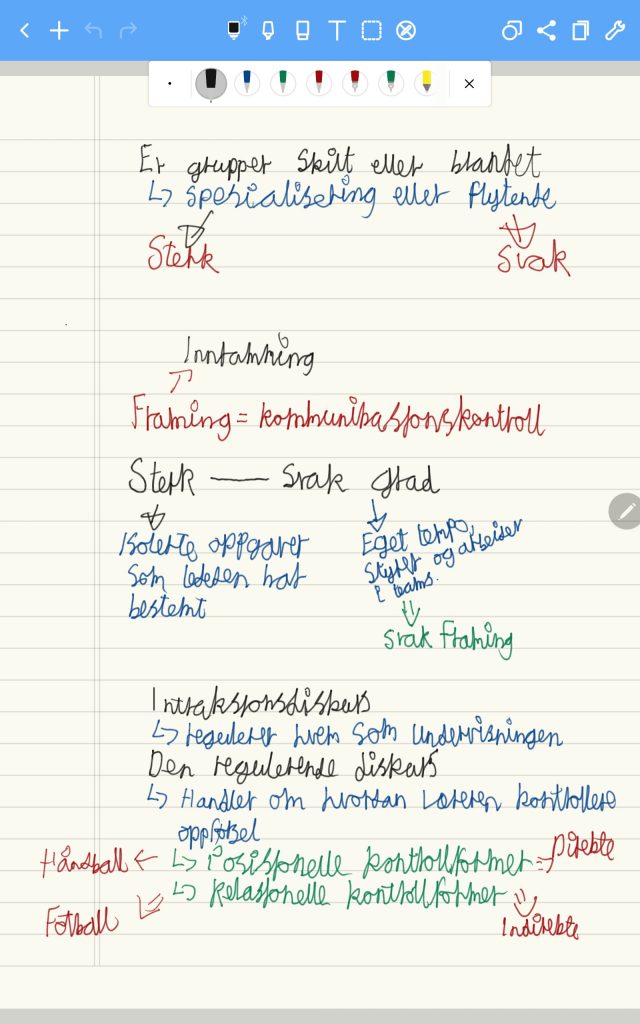 Er grupper skilt eller blandet
↳ spesialisering eller flytende
Sterk Svak
Innramning
Framing = kommunikasjonskontroll
Sterk — Svak grad
Isolerte oppgaver Eget tempo,
som læreren har styrer og arbeider
bestemt i teams.
svak Framing
Intraksjonsdiskurs
↳ regulerer hvem som undervisningen
Den regulerende diskurs
↳ Handler om hvordan Læreren kontrollere
oppførsel
Håndball ← ↳ Posisjonelle kontrollformer ⇒ Direkte
↳ Relasjonelle kontrollformer
Fotball Indirekte